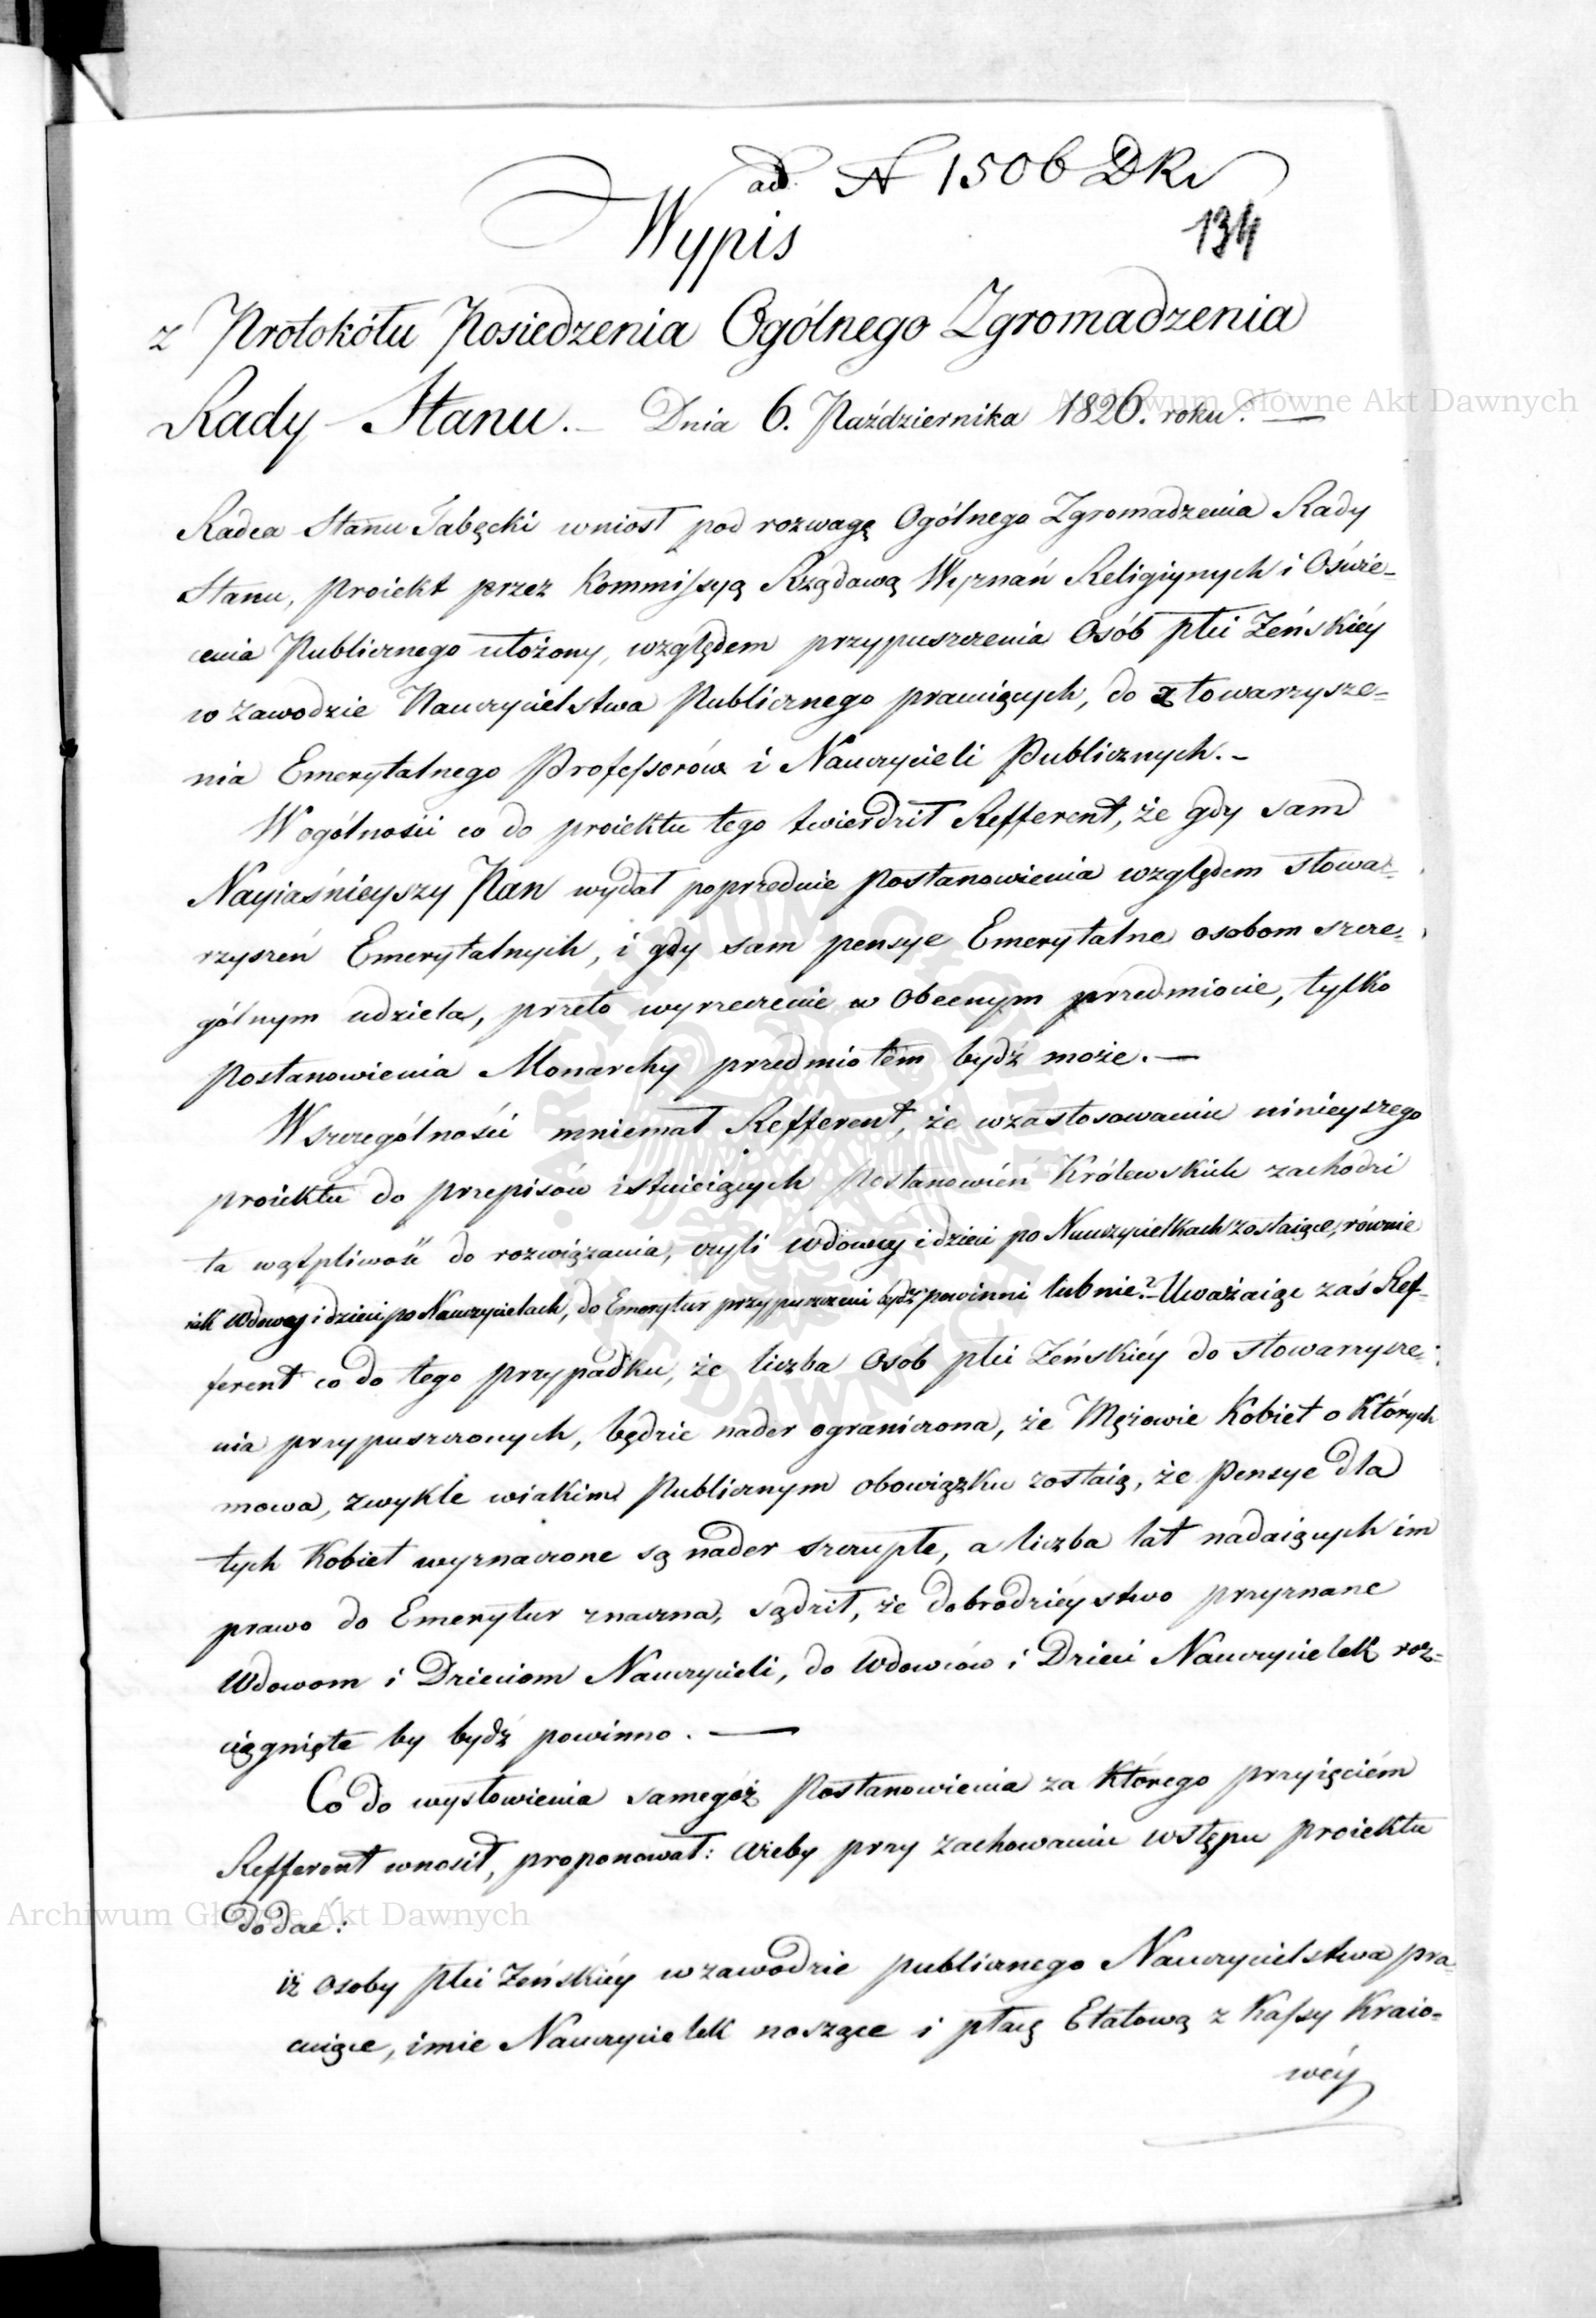 ad. N 1506 DKs
Wypis
134
z Protokółu Posiedzenia Ogólnego Zgromadzenia
Rady Stanu.— Dnia 6. Października 1826. roku. —
Radca Stanu Tabęcki wniosł pod rozwagę Ogólnego Zgromadzenia Rady
Stanu, Proiekt przez Kommissyą Rządową Wyznań Religiynych i Oświe=
cenia Publicznego ułożony, względem przypuszczenia Osób płci Żeńskiéy
w zawodzie Nauczycielstwa Publicznego pracuiących, do stowarzysze=
nia Emerytalnego Professorów i Nauczycieli Publicznych.—
W ogólności co do proiektu tego twierdził Refferent, że gdy sam
Nayiaśnieyszy Pan wydał poprzednie Postanowienia względem stowa=
rzyszeń Emerytalnych, i gdy sam pensye Emerytalne osobom szcze=
gólnym udziela, przeto wyrzeczenie w Obecnym przedmiocie, tylko
Postanowienia Monarchy przedmiotem bydź może. —
W szczególności mniemał Refferent, że w zastosowaniu ninieyszego
proiektu do przepisów istnieiących Postanowień Królewskich zachodzi
ta wątpliwość do rozwiązania, czyli wdowcy i dzieci po Nauczycielkach zostaiące, równie
iak Wdowy i dzieci po Nauczycielach, do Emerytur przypuszczeni bydź powinni lub nie? Uważaiąc zaś Ref=
ferent co do tego przypadku, że liczba Osób płci Żeńskiéy do stowarzysze=
nia przypuszczonych, będzie nader ograniczona, że Mężowie Kobiet o których
mowa, zwykle w iakim Publicznym obowiązku zostaią, że Pensye dla
tych Kobiet wyznaczone są nader szczupłe, a liczba lat nadaiących im
prawo do Emerytur znaczna, sądził, że dobrodzieystwo przyznane
Wdowom i Dzieciom Nauczycieli, do Wdowców i Dzieci Nauczycielek roz=
ciągnięte by bydź powinno. —
Co do wysłowienia samegóż Postanowienia za którego przyięciém
Refferent wnosił, proponował: ażeby przy zachowaniu wstępu proiektu
dodać:
iż osoby płci Żeńskiéy w zawodzie publicznego Nauczycielstwa pra=
cuiące, imie Nauczycielek noszące i płacę Etatową z Kassy Kraio=
wéy
Archiwum Główne Akt Dawnych
ARCHIWUM GŁÓWNE AKT DAWNYCH
Archiwum Główne Akt Dawnych